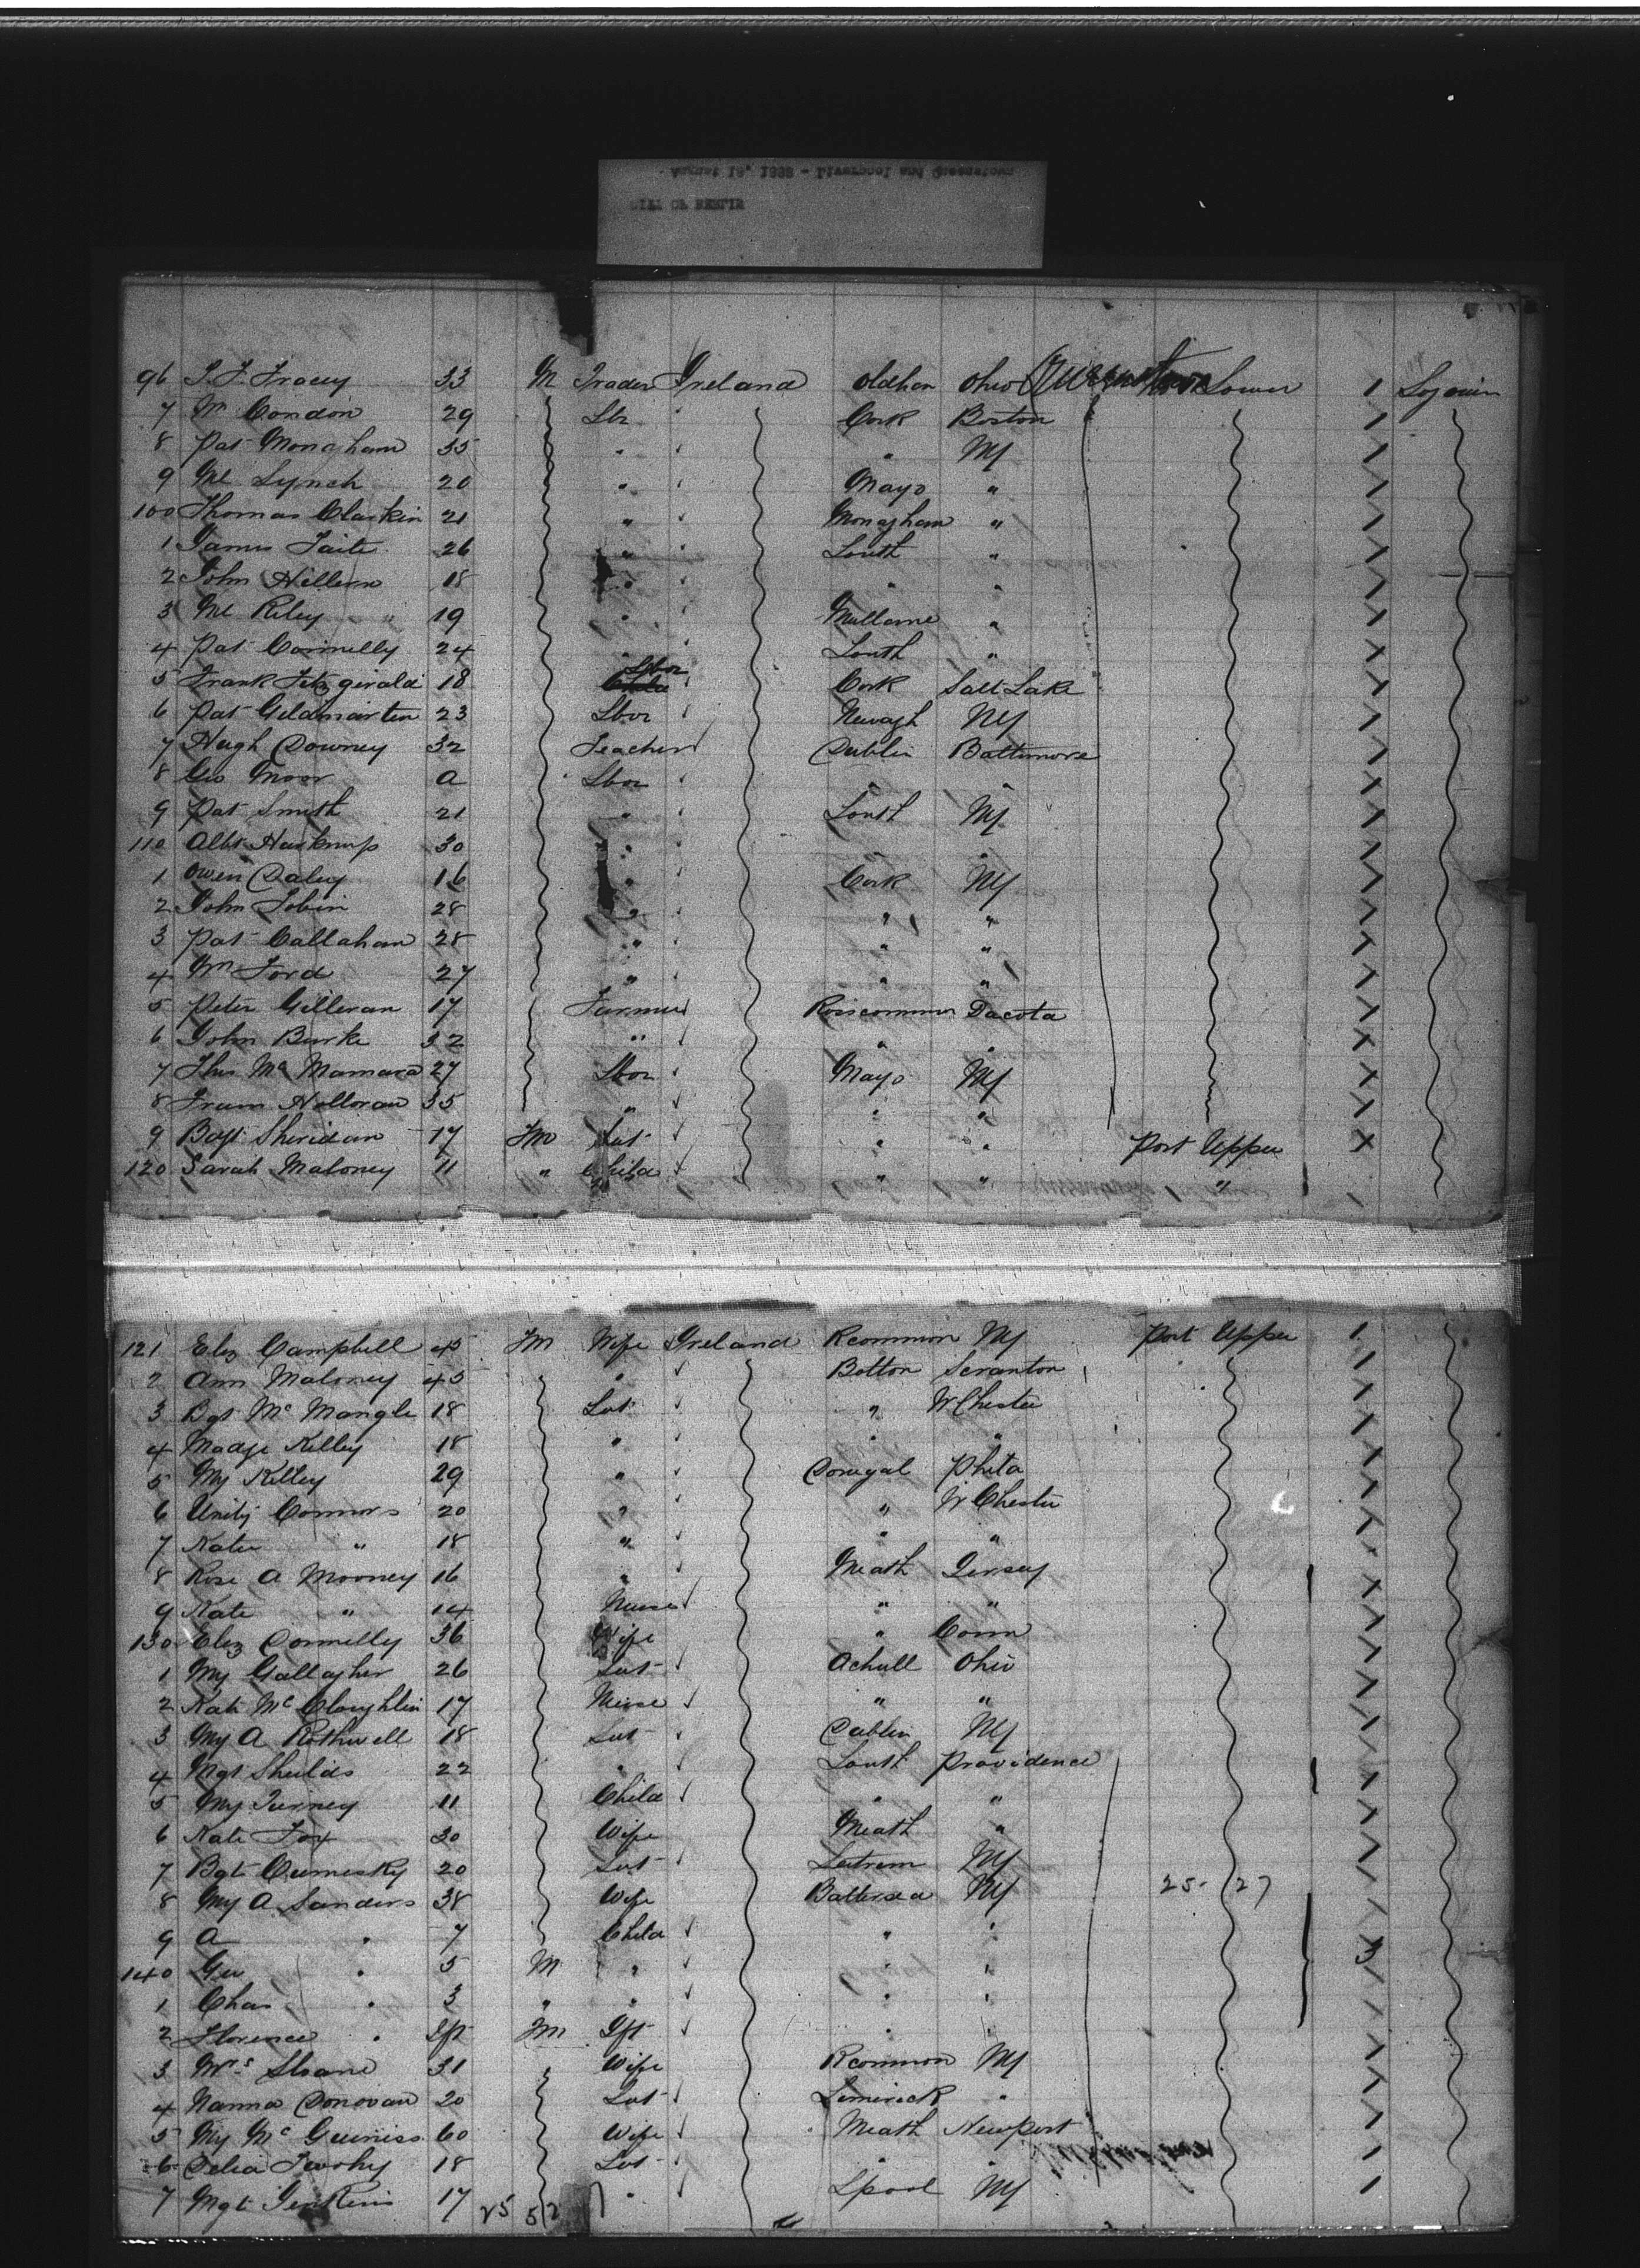 96 T. F. Tracey 33 M Trader Ireland Oldham Ohio Queenstown Lower 1 Sojourn
7 Wm Condon 29 Lbr " Cork Boston 1
8 Pat Monaghan 35 " " " NY 1
9 Ml Lynch 20 " " Mayo " 1
100 Thomas Clarkin 21 " " Monaghan " 1
1 James Taite 26 " " Louth " 1
2 John Hillern 18 " " " " 1
3 Ml Riley 19 " " "
4 Pat Connelly 24 " " Louth " 1
5 Frank Fitzgerald 18 Lbor Cork Salt Lake 1
6 Pat Gildmarten 23 Lbor Newagh NY 1
7 Hugh Downey 32 Teacher Dublin Baltimore 1
8 Geo Moor a Lbor " " 1
9 Pat Smith 21 " Louth NY 1
110 Albt 30 " " " 1
1 Owen Daley 16 " Cork NY 1
2 John Tobin 28 " " " 1
3 Pat Callahan 28 " " " 1
4 Wm Ford 27 " " " 1
5 Peter Gilleran 17 Farmer Roscommon Dacota 1
6 John Burke 32 " " " 1
7 Thos McMamara 27 Lbor Mayo NY 1
8 Holloran 35 " " " 1
9 Bgt Sheridan 17 Fm " " Port Upper 1
120 Sarah Maloney 11 " Child " " " 1
121 Eliz Campbell 45 Fm Wife Ireland Rcommon NY Port Upper 1
2 Ann Maloney 45 " " Bolton Scranton 1
3 Bgt Mc Mangle 18 " W Chester 1
4 Madge Kelley 18 " " " 1
5 My Kelley 29 " Donegal Phila 1
6 Unity Connors 20 " " W Chester 1
7 Kate " 18 " " " 1
8 Rose A Mooney 16 " Meath Jersey 1
9 Kate " 14 Nurse " " 1
130 Eliz Donnelly 36 Wife " Conn 1
1 My Gallagher 26 Achull Ohio 1
2 Kate McCloughlin 17 Nurse " " 1
3 My A Rothwell 18 Dublin NY 1
4 Mgt Sheilds 22 " Louth Providence 1
5 My 11 Child " " 1
6 Kate Fox 30 Wife Meath " 1
7 Bgt Cumesky 20 Leitrim NY 1
8 My A Sanders 38 Wife Battersea NY 25-27 1
9 A " 7 Child " "
140 Geo " 5 M " " " 3
1 Chas " 3 " " " " 1
2 Florence " Ift Fm Ift " " 1
3 Mrs Sloane 31 " Wife Rcommon NY 1
4 Nanna Donovan 20 Limerick " 1
5 My McGuiniss 60 Wife Meath Newport 1
6 Delia 18 " " 1
7 Mgt Jenkins 17 " Lpool NY 1